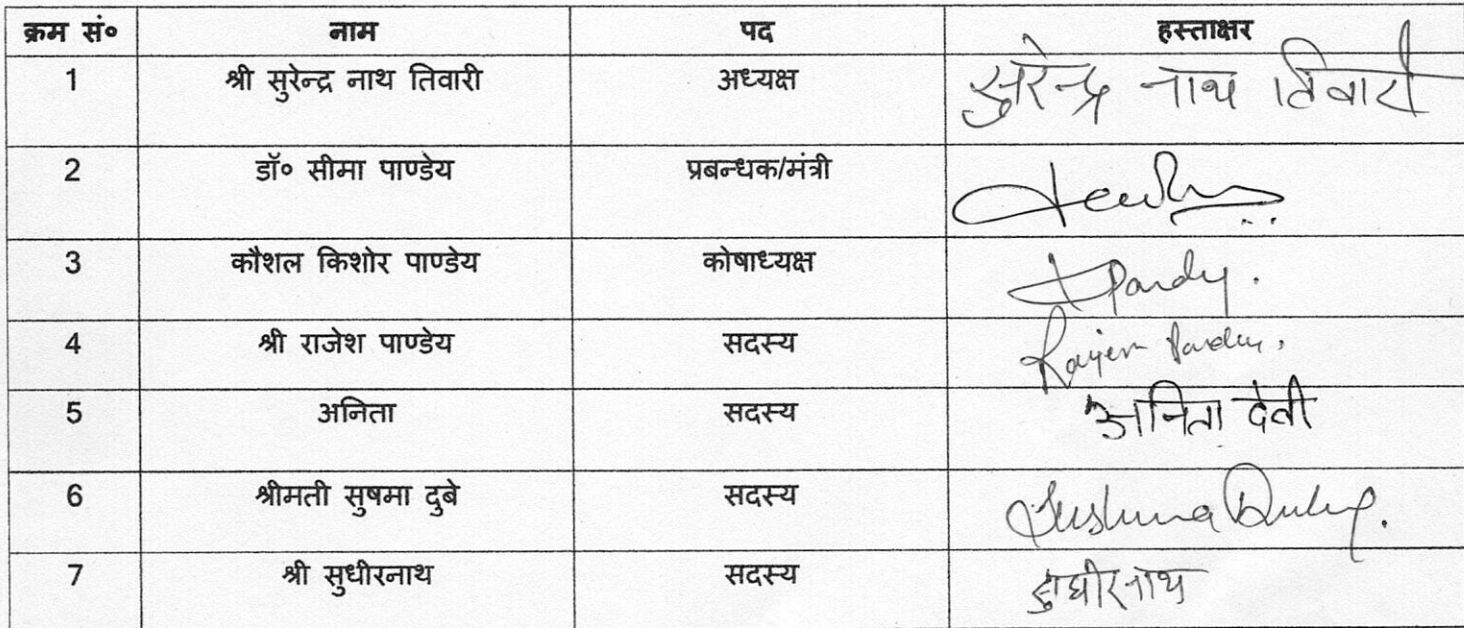 क्रम सं० नाम पद हस्ताक्षर
1 श्री सुरेन्द्र नाथ तिवारी अध्यक्ष सुरेन्द्र नाथ तिवारी
2 डॉ० सीमा पाण्डेय प्रबन्धक/मंत्री
3 कौशल किशोर पाण्डेय कोषाध्यक्ष
4 श्री राजेश पाण्डेय सदस्य
5 अनिता सदस्य अनिता देवी
6 श्रीमती सुषमा दुबे सदस्य Sushma Dubey.
7 श्री सुधीरनाथ सदस्य सुधीरनाथ